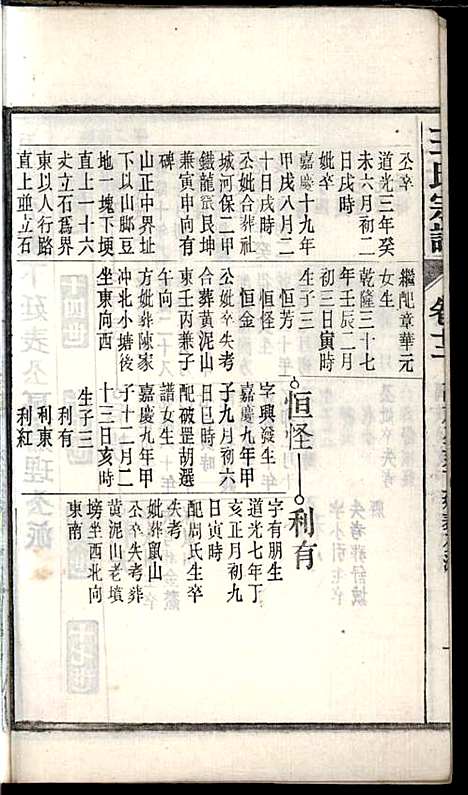 王氏宗譜
卷十三
公卒
道光三年癸
未六月初二
日戌時
妣卒
嘉慶十九年
甲戌八月二
十日戌時
公妣合葬社
城河保二甲
鐵龍嘴艮坤
兼寅申向有
碑
山正中界址
下以山腳豆
地一塊下埂
直上一十六
丈立石為界
東以人行路
直上並立石
繼配章華元
女生
乾隆三十七
年壬辰二月
初三日寅時
生子三
恒芳
恒怪
恒金
公妣卒失考
合葬黃泥山
東壬丙兼子
午向
方妣葬陳家
冲北小塘後
坐東向西
恒怪
字興發生
嘉慶九年甲
子九月初六
日巳時
配破罡胡選
譜女生
嘉慶九年甲
子十二月二
十三日亥時
生子三
利有
利東
利紅
利有
字有朋生
道光七年丁
亥正月初九
日寅時
配周氏生卒
失考
妣葬鼠山
公卒失考葬
黃泥山老墳
塝坐西北向
東南